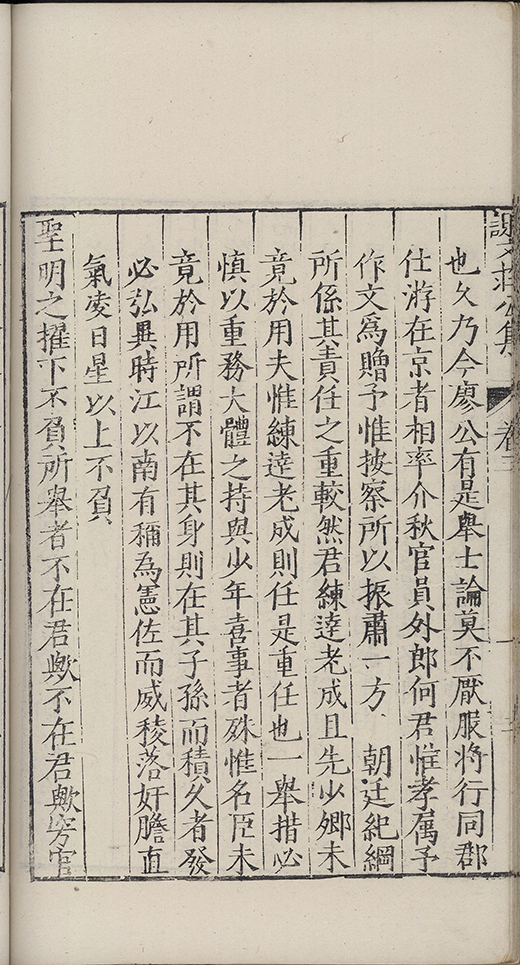 文莊公集 卷三
也久乃今廖公有是舉士論莫不厭服将行同郡
仕游在京者相率介秋官員外郎何君惟孝属予
作文爲贈予惟按察所以振肅一方朝廷紀綱
所係其責任之重較然君練達老成且先少卿未
竟於用夫惟練達老成則任是重任也一舉措必
慎以重務大體之持與少年喜事者殊惟名臣未
竟於用所謂不在其身則在其子孫而積久者發
必弘異時江以南有稱為憲佐而威稜落奸膽直
氣凌日星以上不負
聖明之擢下不負所舉者不在君歟不在君歟旁官